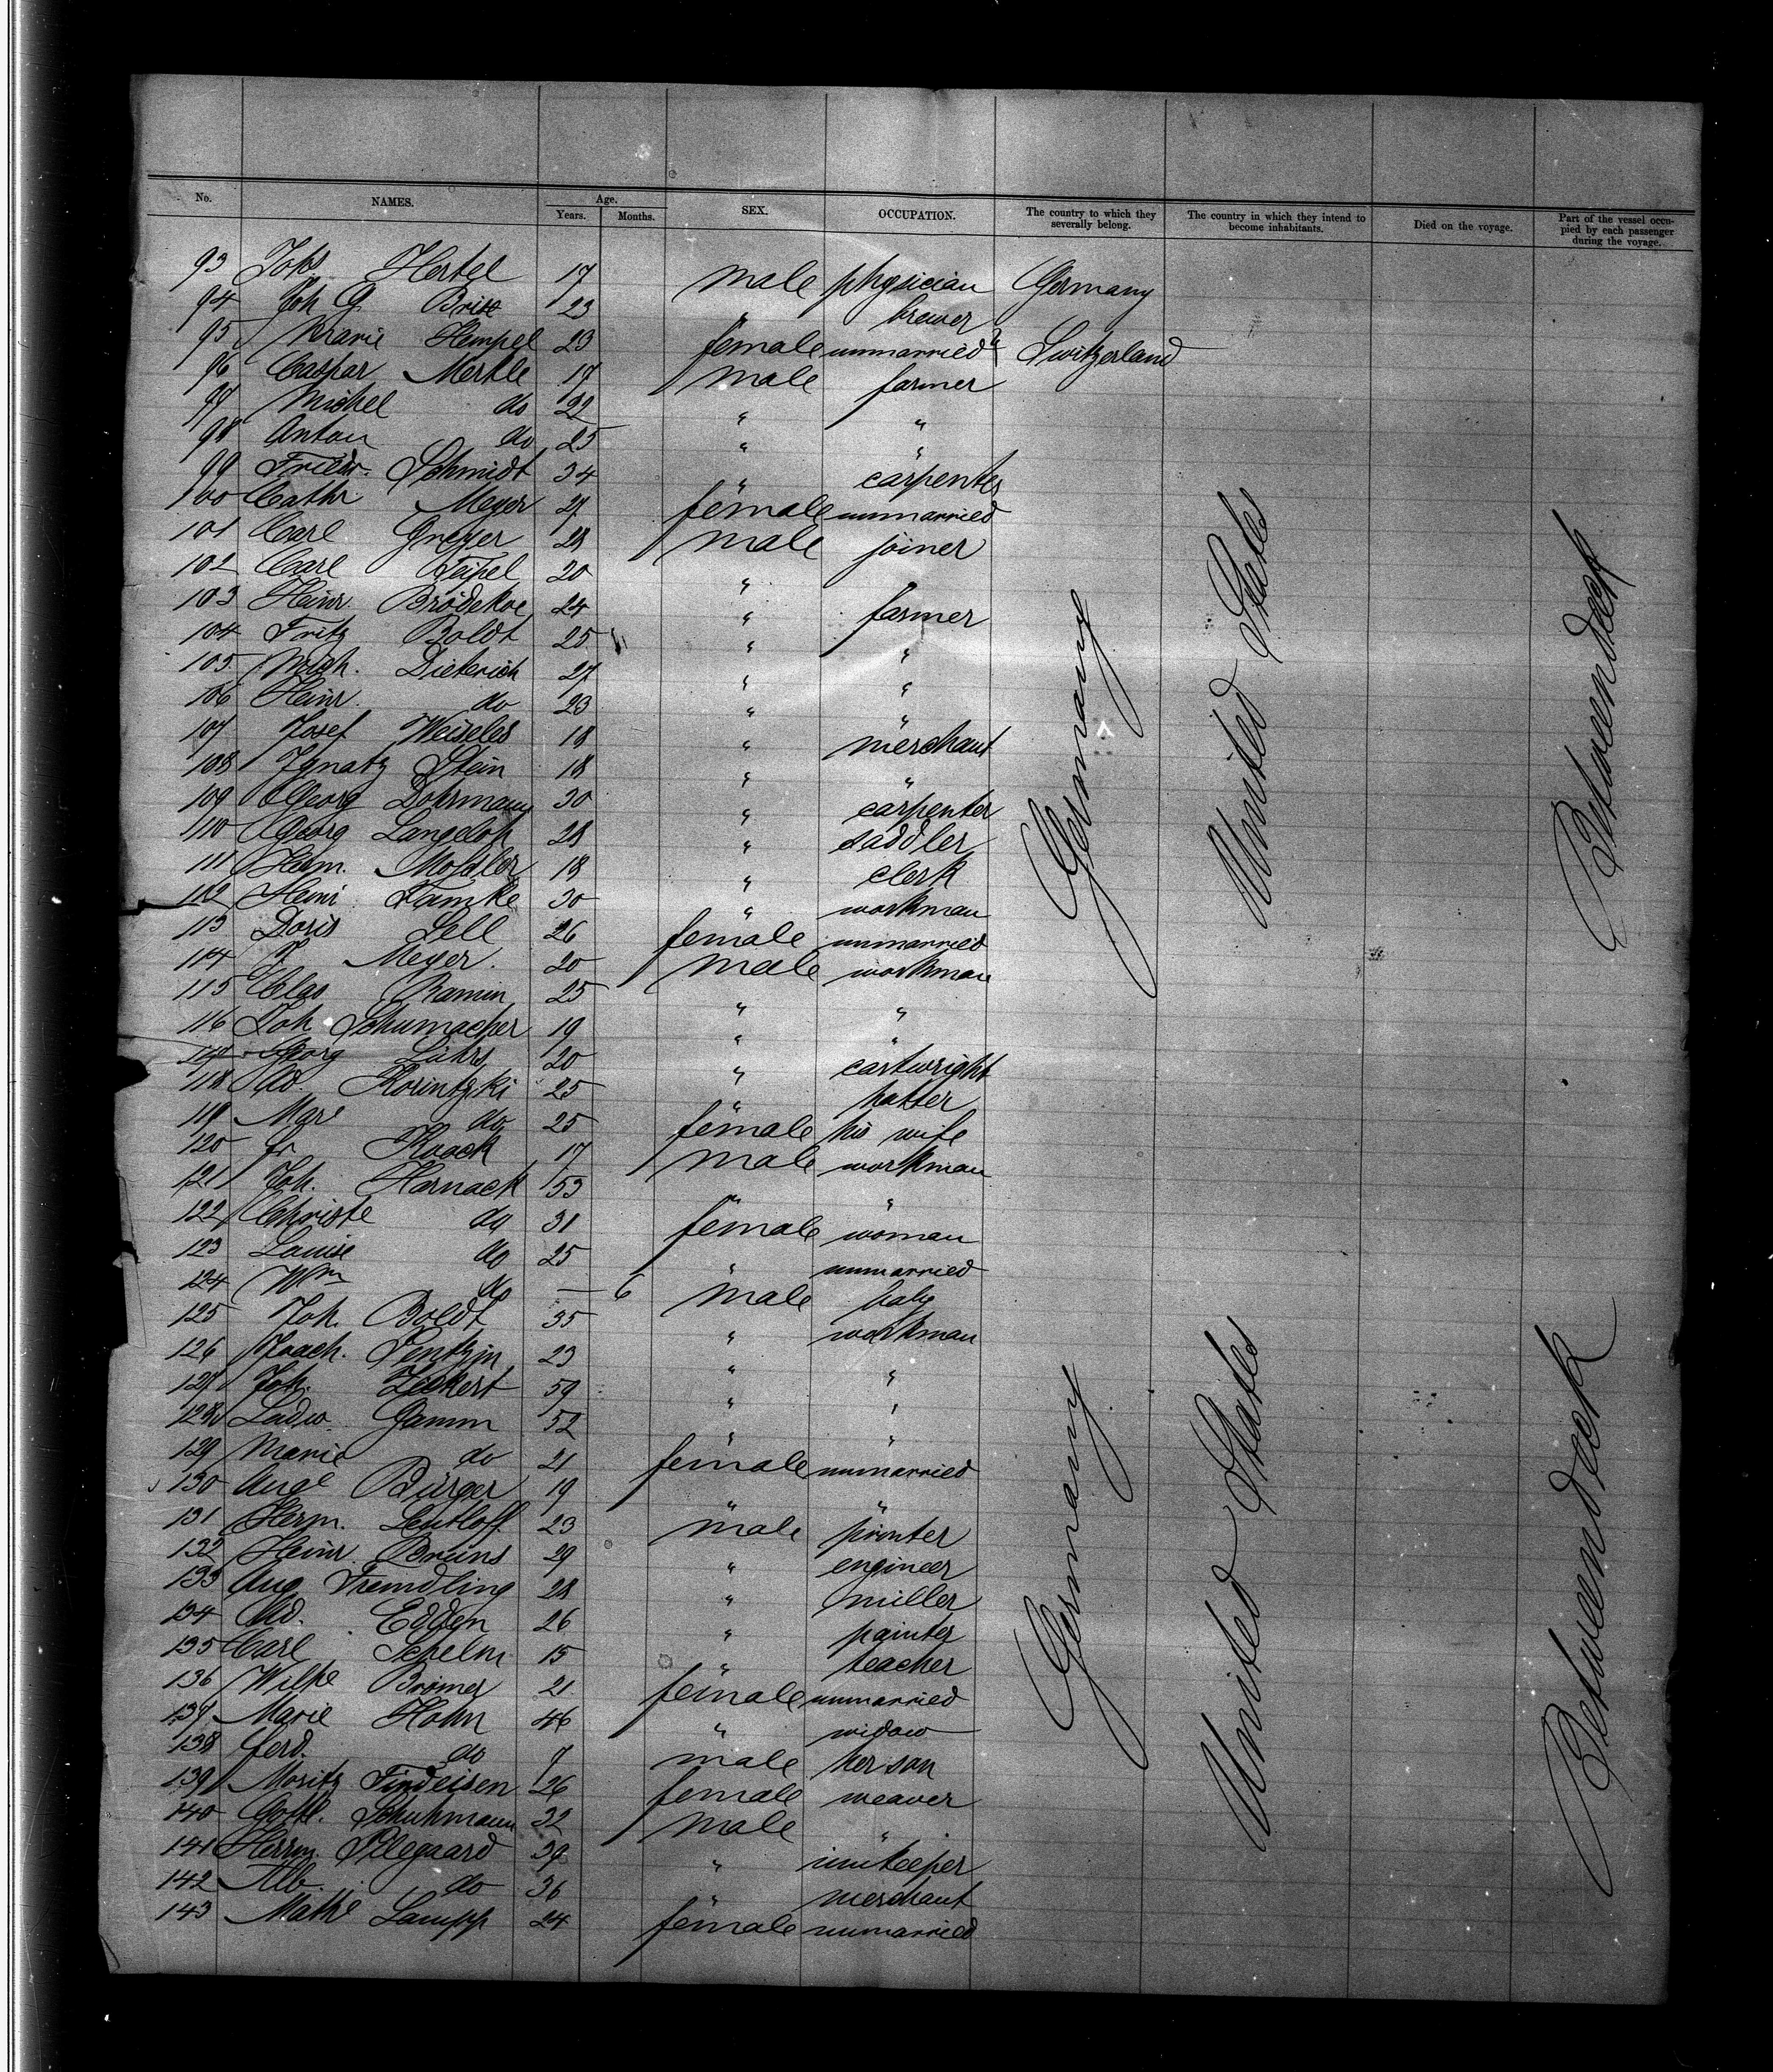 No. NAMES. Age. Years. Months. SEX. OCCUPATION. The country to which they severally belong. The country in which they intend to become inhabitants. Died on the voyage. Part of the vessel occupied by each passenger during the voyage.
93 Johs Hertel 17 male physician Germany
94 Joh G 23 " brewer
95 Marie Hempel 23 female unmarried Switzerland
96 Caspar Mertle 17 male farmer
97 Michel do 22 " "
98 Anton do 25 " "
99 Friedr. Schmidt 34 " carpenter
100 Cathr Meyer 27 female unmarried
101 Carl Greyer 28 male joiner
102 Carl Teipel 20 "
103 Heinr. Brödekoe 24 " farmer
104 Fritz Boldt 25 " "
105 Dieterich 27 " "
106 Heinr. do 23 " "
107 Josef Weiseles 18 " merchant
108 Ignatz Stein 18 " "
109 Georg Dohrmann 30 " carpenter
110 Georg Langeloh 28 " saddler
111 Herm. Mohler 18 " clerk
112 Heinr Tamke 30 " workman
113 Doris Sell 26 female unmarried
114 Meyer. 20 male workman
115 Clas Ramin 25 " "
116 Joh Schumacher 19 " "
117 Georg Lührs 20 " cartwright
118 Ad. Korintzki 25 " hatter
119 Mare do 25 female his wife
120 Fr Kaack 17 male workman
121 Joh. Harnack 53 " "
122 Christe do 31 female woman
123 Louise do 25 " unmarried
124 Wm do — 6 male baby
125 Joh. Boldt 35 " workman
126 Joach. Pentzin 23 " "
127 Joh. Zeckert 59 " "
128 Ludw. Gamm 52 " "
129 Marie do 21 female unmarried
130 Auge Bürger 19 " "
131 Herm. Leutloff 23 male printer
132 Heinr. Bruns 29 " engineer
133 Aug Fremdling 28 " miller
134 Ad. Edden 26 " painter
135 Carl Schelm 15 " teacher
136 Wilhe Brömer 21 female unmarried
137 Marie Hohn 46 " widow
138 Ferd. do 7 male her son
139 Moritz Findeisen 26 female weaver
140 Gottl. Schuhmann 32 male "
141 Herrm. Pilegaard 39 " innkeeper
142 Alb. do 36 " merchant
143 Mathe Lampp 24 female unmarried
Germany United States Between deck
Germany United States Between deck